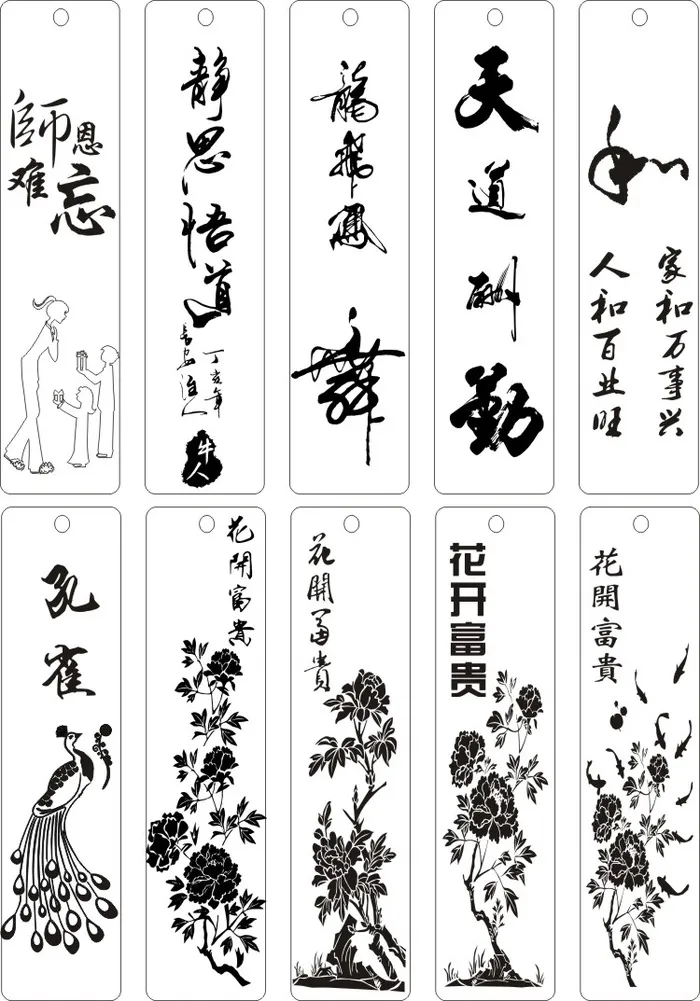 師恩
难忘
静思悟道
丁亥年
牛人
龍飛鳳舞
天道酬勤
和
家和万事兴
人和百业旺
孔雀
花開富貴
花開富貴
花开富贵
花開富貴